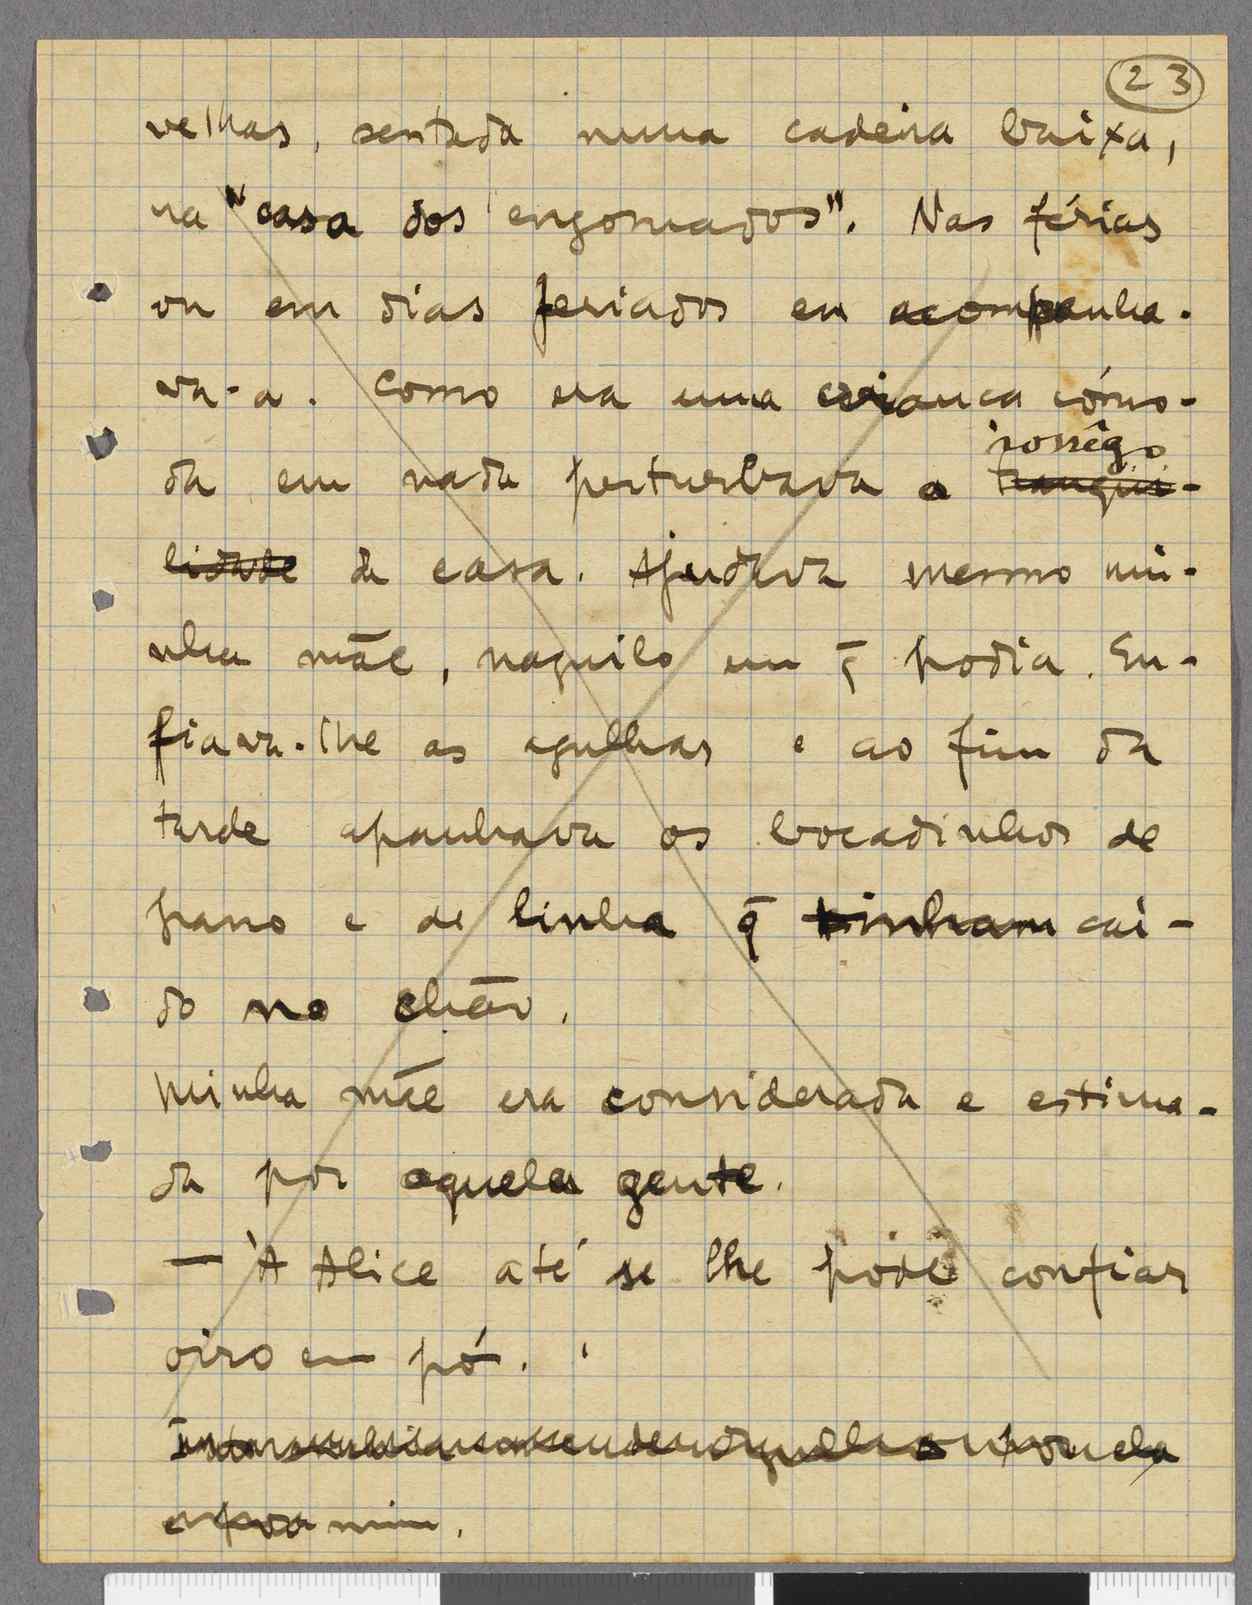 23
velhas, sentada numa cadeira baixa,
na "casa dos engomados". Nas férias
ou em dias feriados eu acompanha-
va-a. Como era uma criança cómo-
sossêgo
da em nada perturbava o tranqui-
lidade da casa. Ajudava mesmo mi-
nha mãe, naquilo em q̄ podia. En-
fiava-lhe as agulhas e ao fim da
tarde apanhava os bocadinhos de
pano e de linha q̄ tinham caí-
do no chão.
Minha mãe era considerada e estima-
da por aquela gente.
— À Alice até se lhe póde confiar
oiro em pó.
orgulho para ela
e para mim.